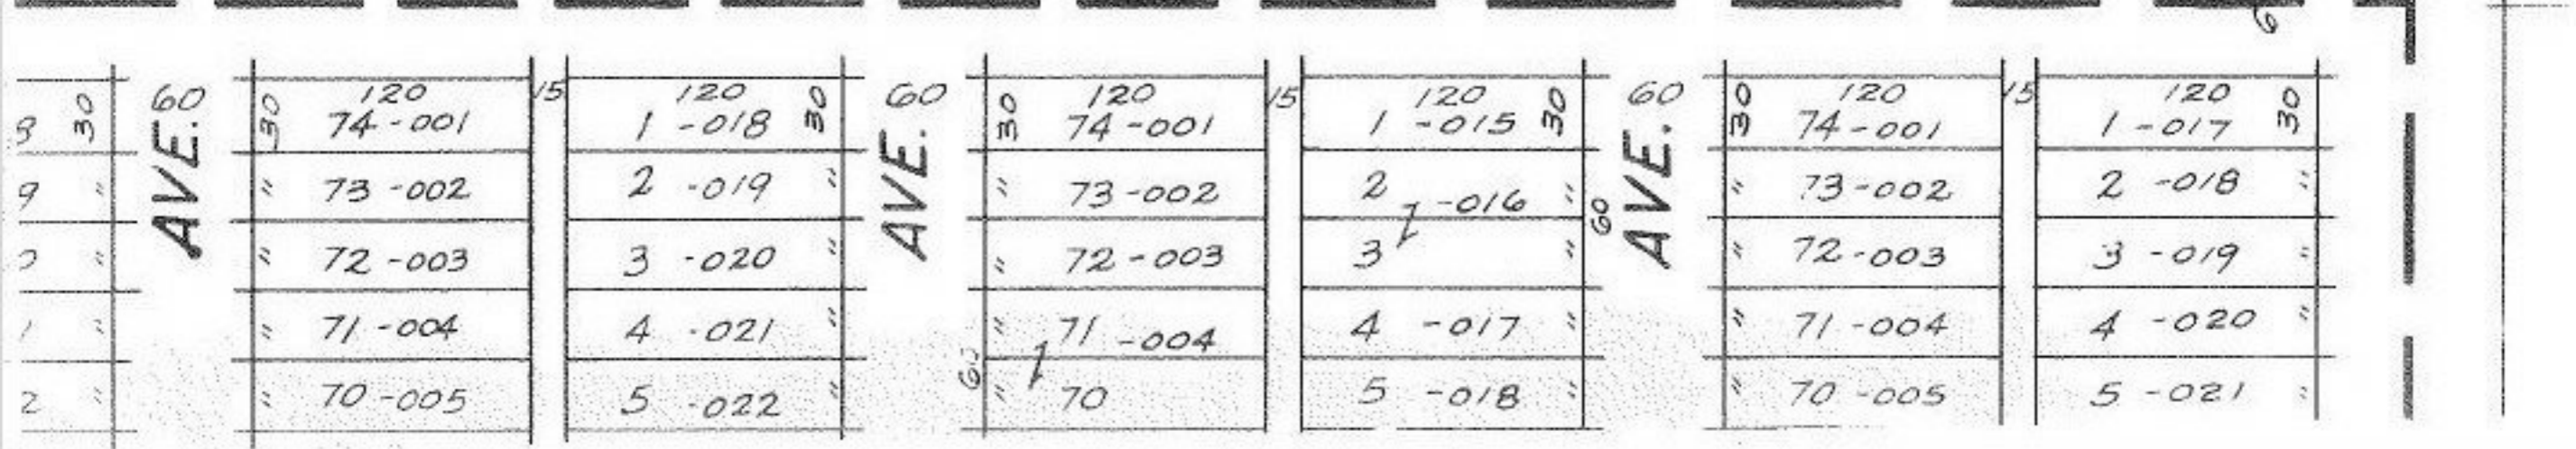 30 " " " "
9
2
AVE. 60
30 " " " "
120
74-001
73-002
72-003
71-004
70-005
15
120
1 -018 30
2 -019 "
3 -020 "
4 -021 "
5 -022 "
AVE. 60
30 " " " "
120
74-001
73-002
72-003
71 -004
70
15
120
1 -015 30
2 -016 "
3 "
4 -017 "
5 -018 "
60
AVE. 60
30 " " " "
120
74-001
73-002
72-003
71-004
70-005
15
120
1 -017 30
2 -018 "
3 -019 "
4 -020 "
5 -021 "